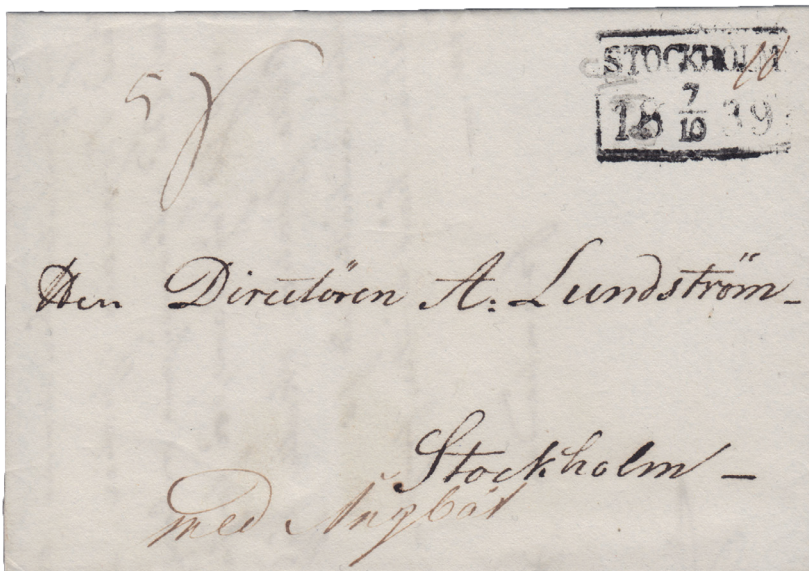 STOCKHOLM
18 7/10 39
Herr Directören A: Lundström_
Stockholm _
med Ångbåt